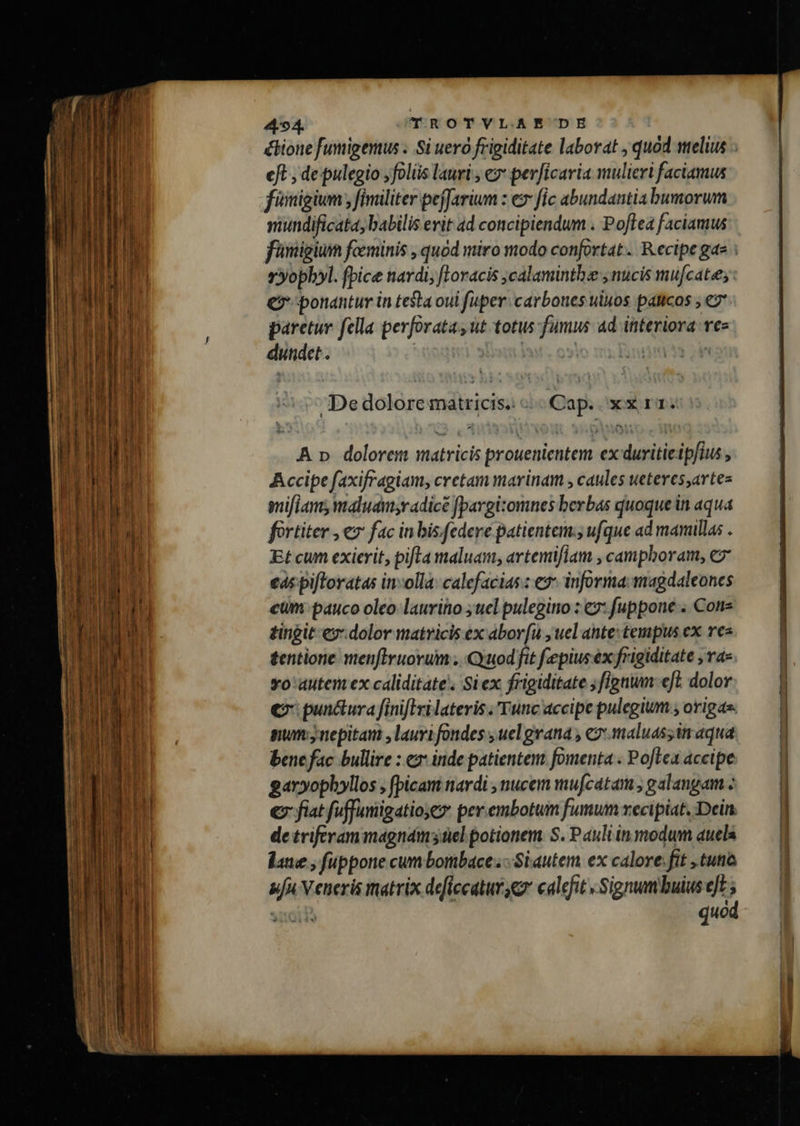 494 TROTVLAE DE
ctione fumigemus. Si uerò frigiditate laborat, quòd melius
eſt, de pulegio, folijs lauri, & perſicaria mulieri faciamus
fumigium, ſimiliter peſſarium: & ſic abundantia humorum
mundificata, habilis erit ad concipiendum. Poſtea faciamus
fumigium fœminis, quòd miro modo confortat. Recipe ga=
ryophyl. ſpicæ nardi, ſtoracis, calaminthæ, nucis muſcatæ,
& ponantur in teſta oui ſuper carbones uiuos paucos, &
paretur ſella perforata, ut totus fumus ad interiora re=
dundet.
De dolore matricis. Cap. xxii.
AD dolorem matricis prouenientem ex duritie ipſius,
Accipe ſaxifragiam, cretam marinam, caules ueteres, arte=
miſiam, maluam, radicē ſpargi: omnes herbas quoque in aqua
fortiter, & fac in his ſedere patientem, uſque ad mamillas.
Et cum exierit, piſta maluam, artemiſiam, camphoram, &
eas piſtoratas in olla calefacias: & informa magdaleones
cùm pauco oleo laurino, uel pulegino: & ſuppone. Con=
tingit & dolor matricis ex aborſu, uel ante tempus ex re=
tentione menſtruorum. Quod fit ſæpius ex frigiditate, ra=
ro autem ex caliditate. Si ex frigiditate, ſignum eſt dolor
& punctura ſiniſtri lateris. Tunc accipe pulegium, origa=
num, nepitam, lauri fondes, uel grana, & maluas, in aqua
bene fac bullire: & inde patientem fomenta. Poſtea accipe
garyophyllos, ſpicam nardi, nucem muſcatam, galangam:
& fiat ſuffumigatio, & per embotum fumum recipiat. Dein
de triferam magnam, uel potionem S. Pauli in modum auela
lanæ, ſuppone cum bombace. Si autem ex calore fit, tunc
uſu Veneris matrix deſiccatur, & calefit. Signum huius eſt,
quòd